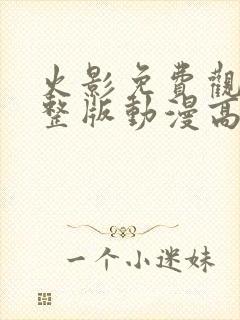 火影免費觀
整版動漫高
一个小迷妹